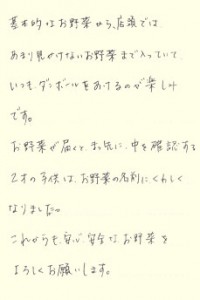 基本的なお野菜から、店頭では、
あまり見かけないお野菜まで入っていて
いつも、ダンボールをあけるのが楽しみ
です。
お野菜が届くと、まっ先に、中を確認する
2才の子供は、お野菜の名前にくわしく
なりました。
これからも、安心、安全な、お野菜を
よろしくお願いします。